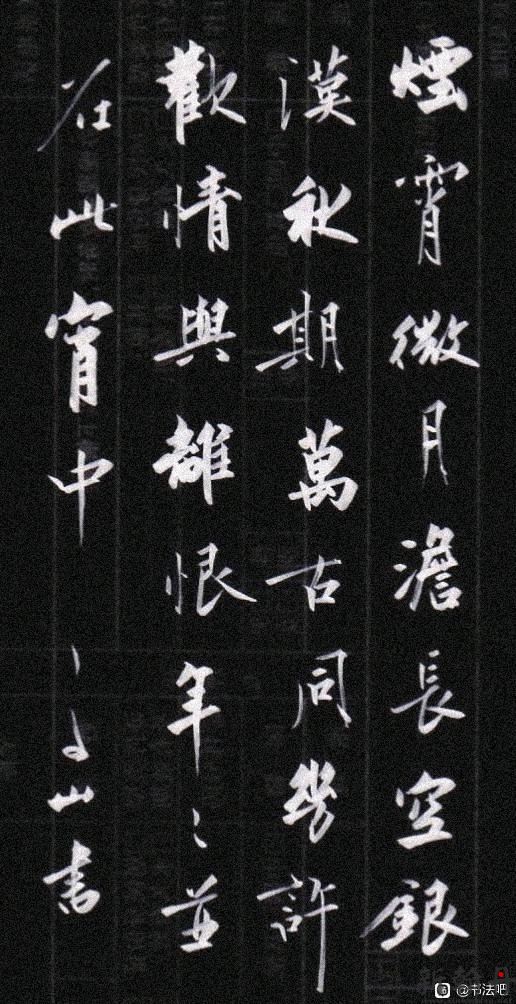 煙霄微月澹長空銀
漢秋期萬古同幾許
歡情與離恨年々並
在此宵中
山書
@书法吧